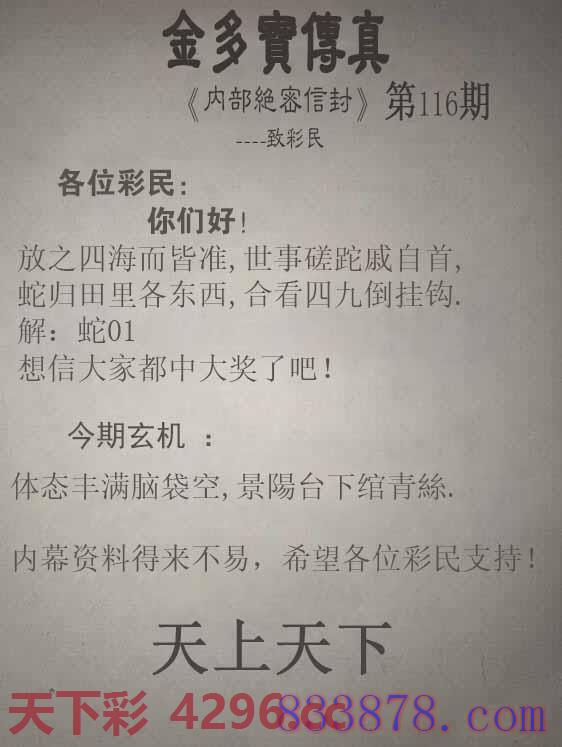 金多寶傳真
《内部絶密信封》第116期
----致彩民
各位彩民:
你们好!
放之四海而皆准,世事磋跎戚自首,
蛇归田里各东西,合看四九倒挂钩.
解：蛇01
想信大家都中大奖了吧!
今期玄机 :
体态丰满脑袋空,景陽台下绾青絲.
内幕资料得来不易，希望各位彩民支持!
天上天下
天下彩 4296.cc
833878.com